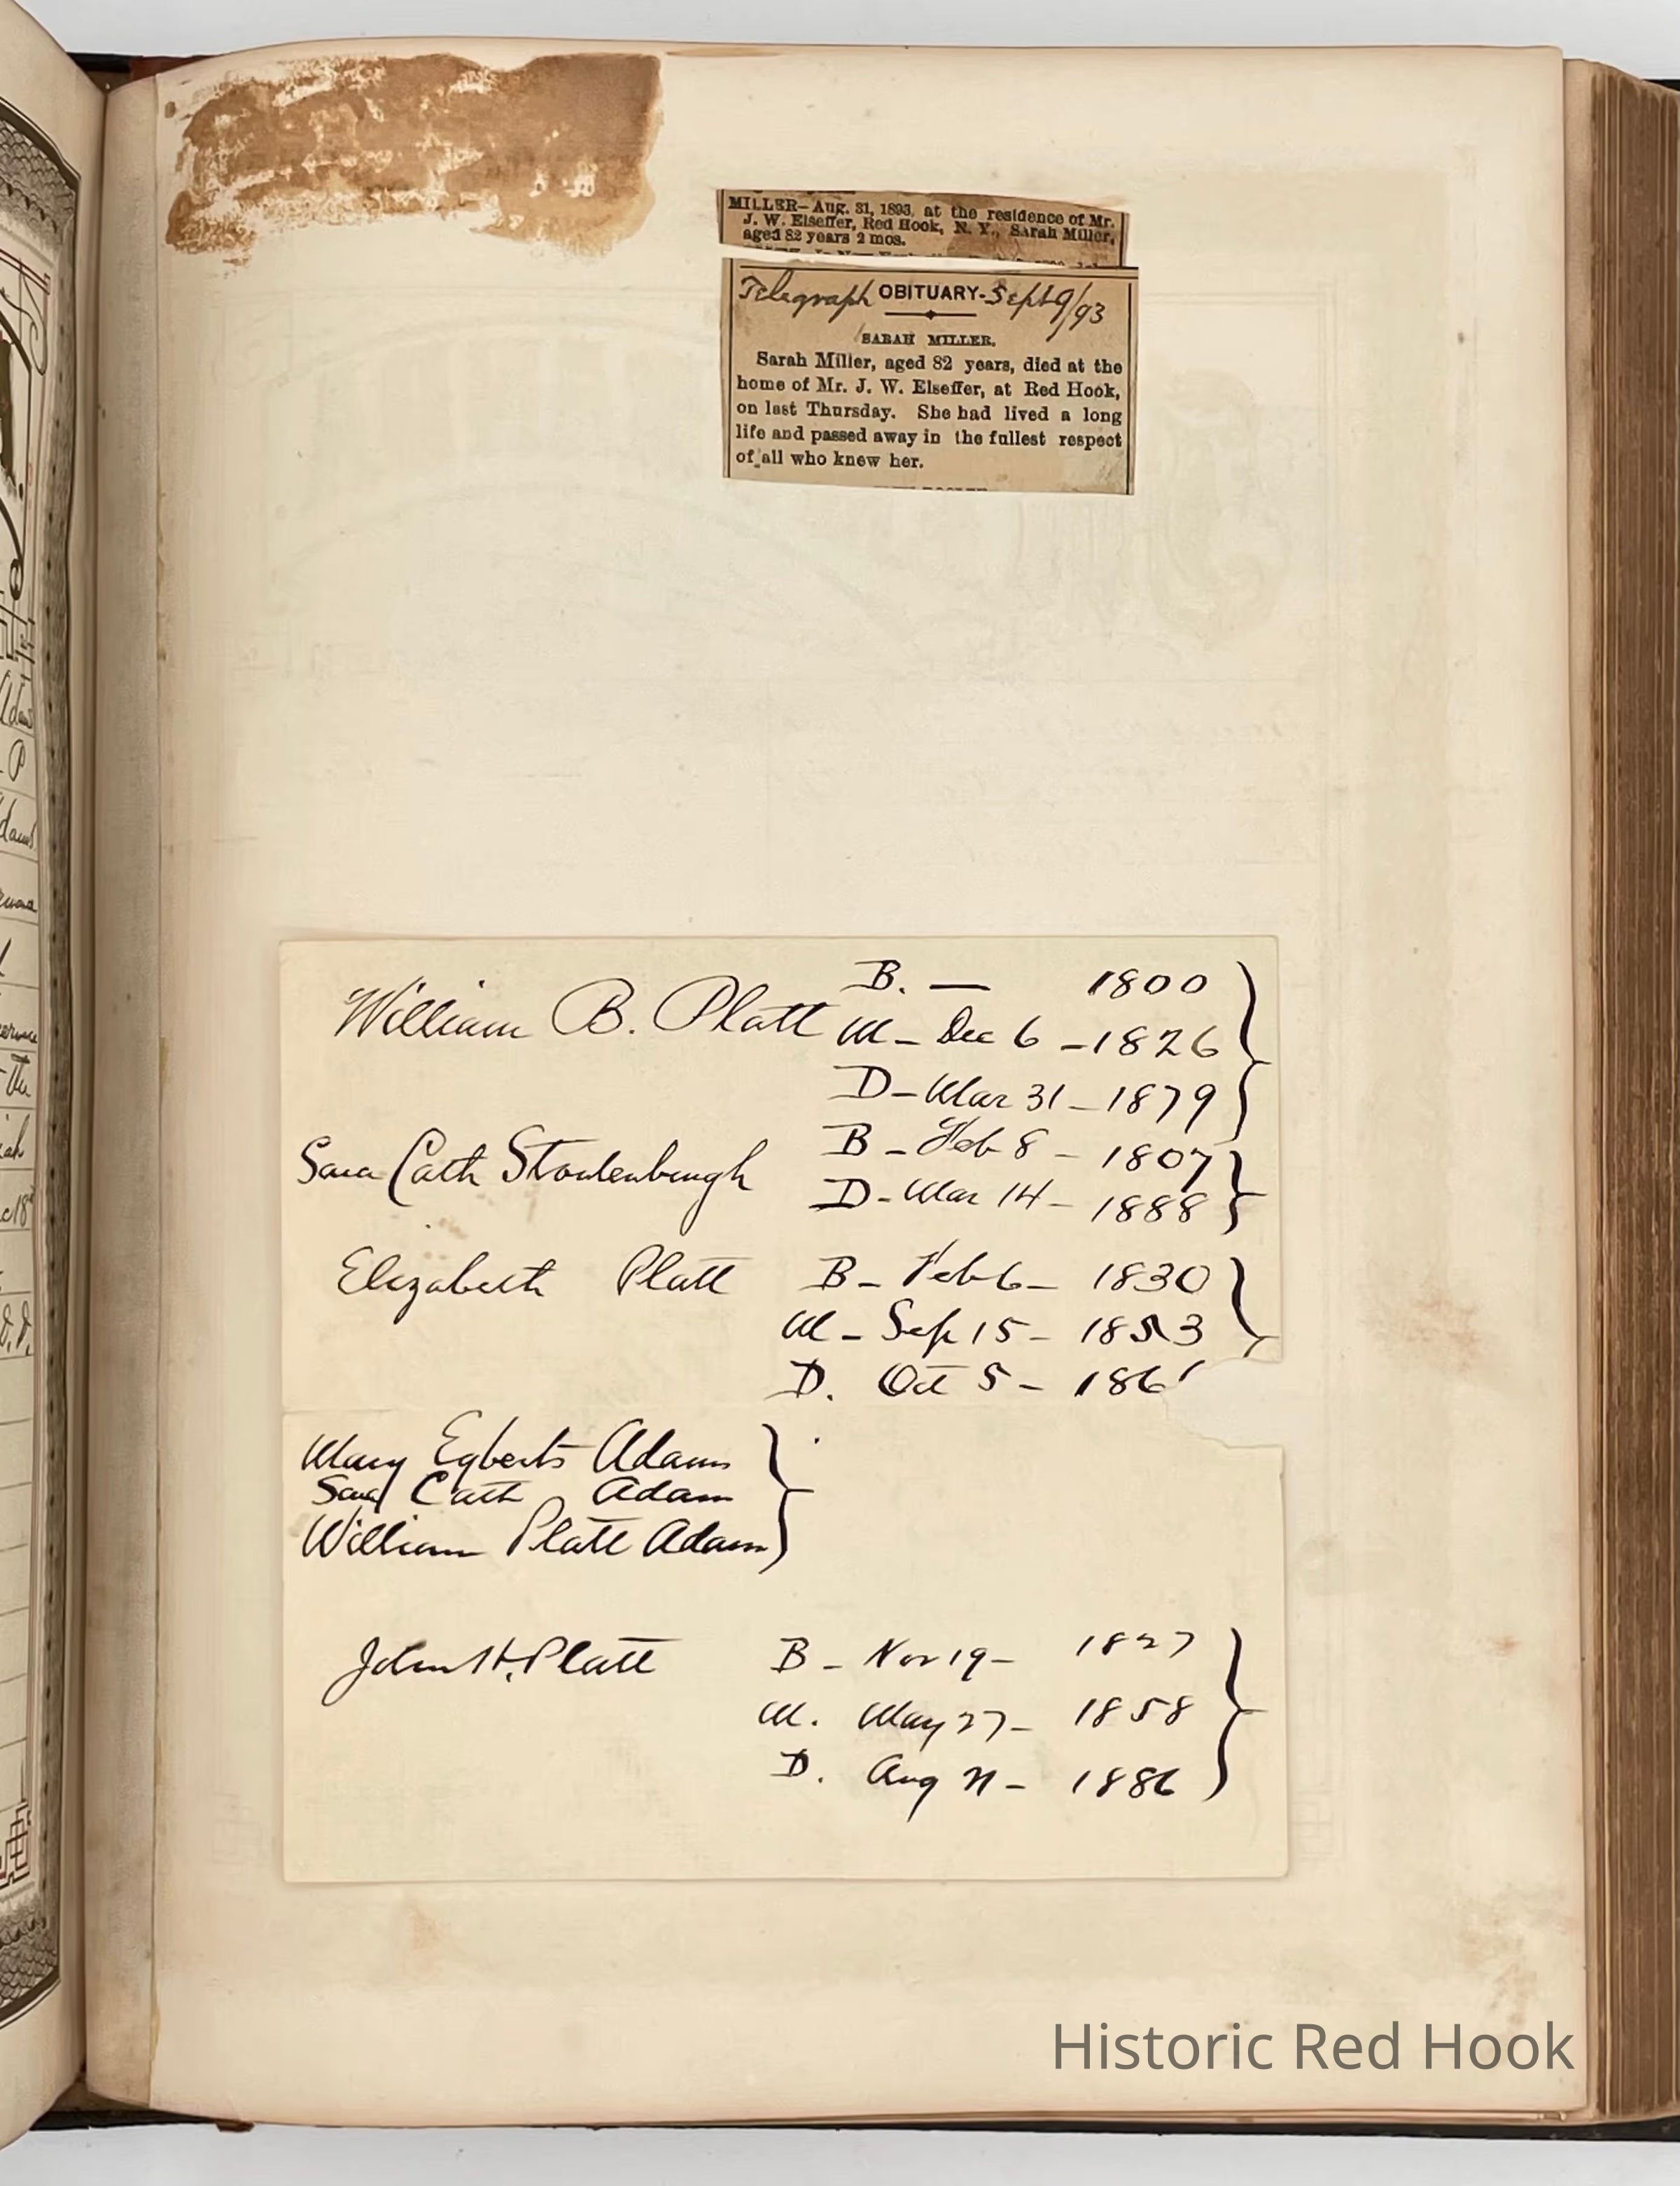 MILLER—Aug. 31, 1893, at the residence of Mr.
J. W. Elseffer, Red Hook, N. Y., Sarah Miller,
aged 82 years 2 mos.
Telegraph OBITUARY- Sept 9/93
SARAH MILLER.
Sarah Miller, aged 82 years, died at the
home of Mr. J. W. Elseffer, at Red Hook,
on last Thursday. She had lived a long
life and passed away in the fullest respect
of all who knew her.
William B. Platt B. — 1800
M – Dec 6 – 1826
D – Mar 31 – 1879
Sara Cath Stoutenburgh B – Feb 8 – 1807
D – Mar 14 – 1888
Elizabeth Platt B – Feb 6 – 1830
M – Sep 15 – 1853
D. Oct 5 – 186
Mary Egberts Adams
Sara Cath Adams
William Platt Adams
John H. Platt B – Nov 19 – 1827
M. May 27 – 1858
D. Aug – 1886
Historic Red Hook